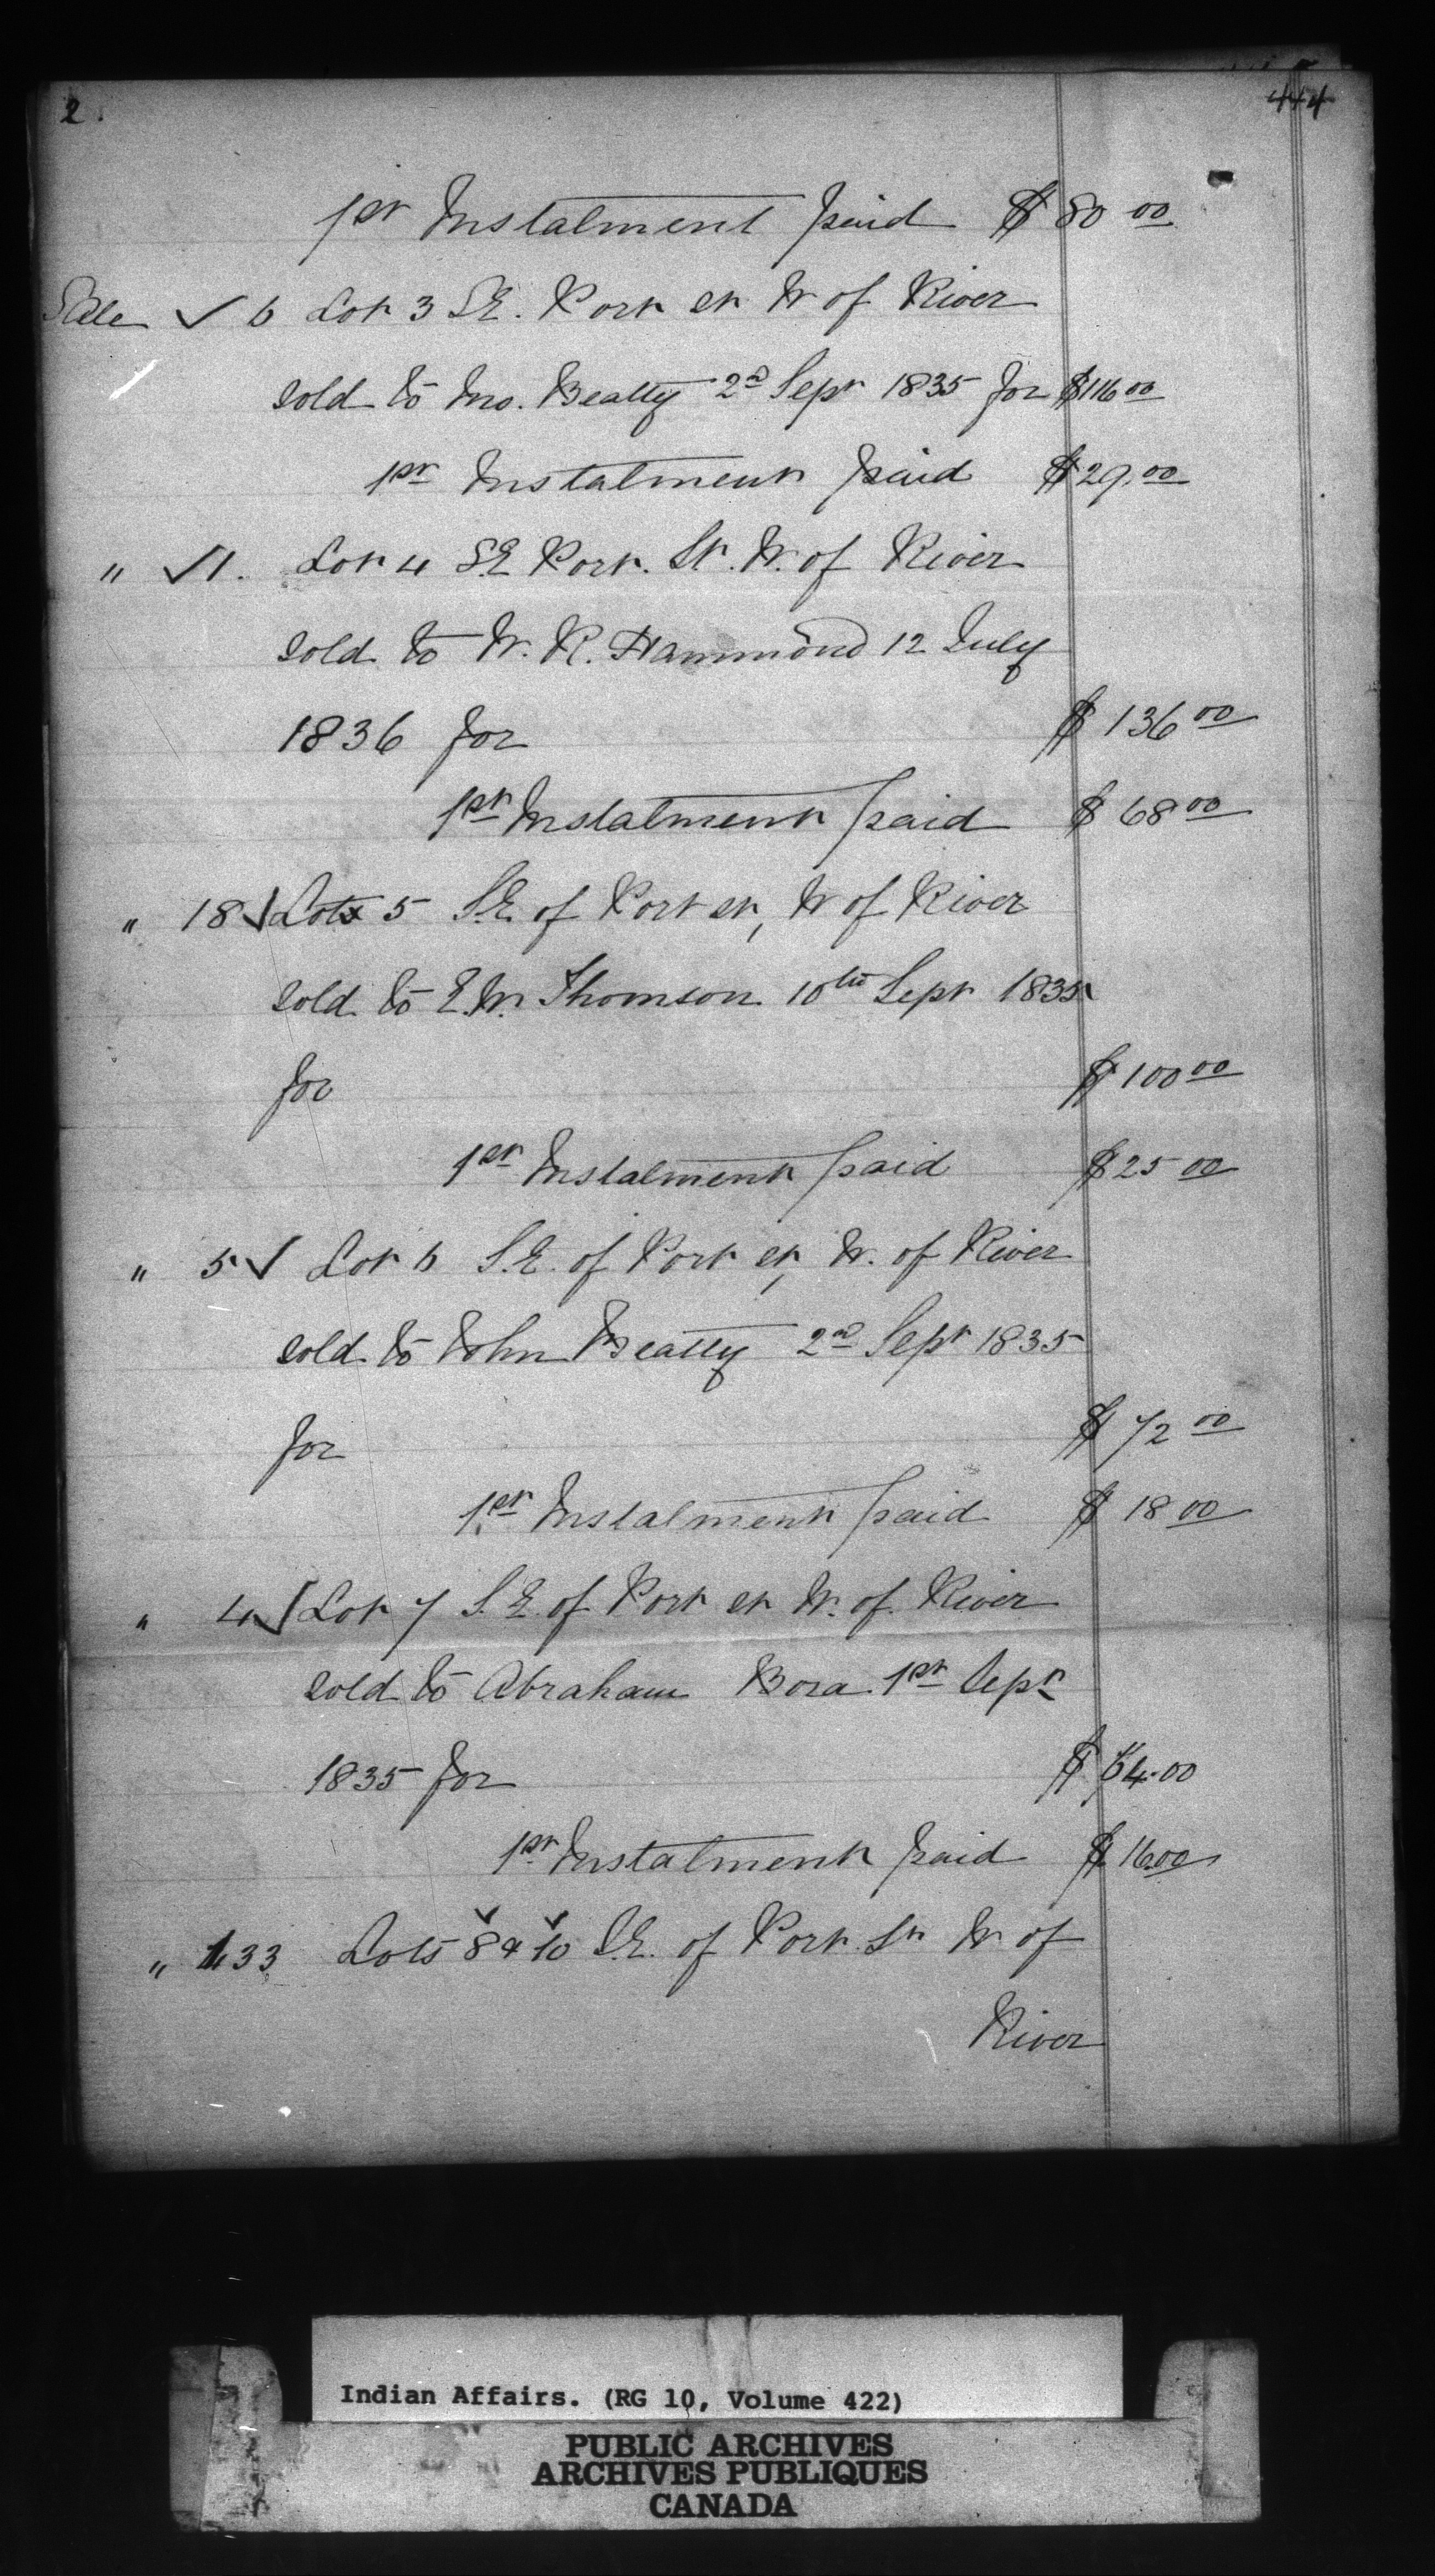 2.
444
1st Instalment paid $80 00
Sale ✓ 6 Lot 3 S.E. Port st W of River
sold to Jno. Beatty 2nd Sept 1835 for $116 00
1st Instalment paid $29.00
" ✓ 1. Lot 4 S.E Port. St. W. of River
sold to W. R. Hammond 12 July
1836 for $136 00
1st Instalment paid $68 00
" 18 ✓ Lot 5 S.E. of Port st, W of River
sold to E.W. Thomson 10th Sept 1835
for $100 00
1st Instalment paid $25 00
" 5 ✓ Lot 6 S.E. of Port st, W. of River
sold to John Beatty 2nd Sept 1835
for $72 00
1st Instalment paid $18 00
" 4 ✓ Lot 7 S.E. of Port st W. of River
sold to Abraham 1st Sept
1835 for $64.00
1st Instalment paid $16.00
" 33 Lots 8 & 10 S.E. of Port. St W of
River
Indian Affairs. (RG 10, Volume 422)
PUBLIC ARCHIVES
ARCHIVES PUBLIQUES
CANADA